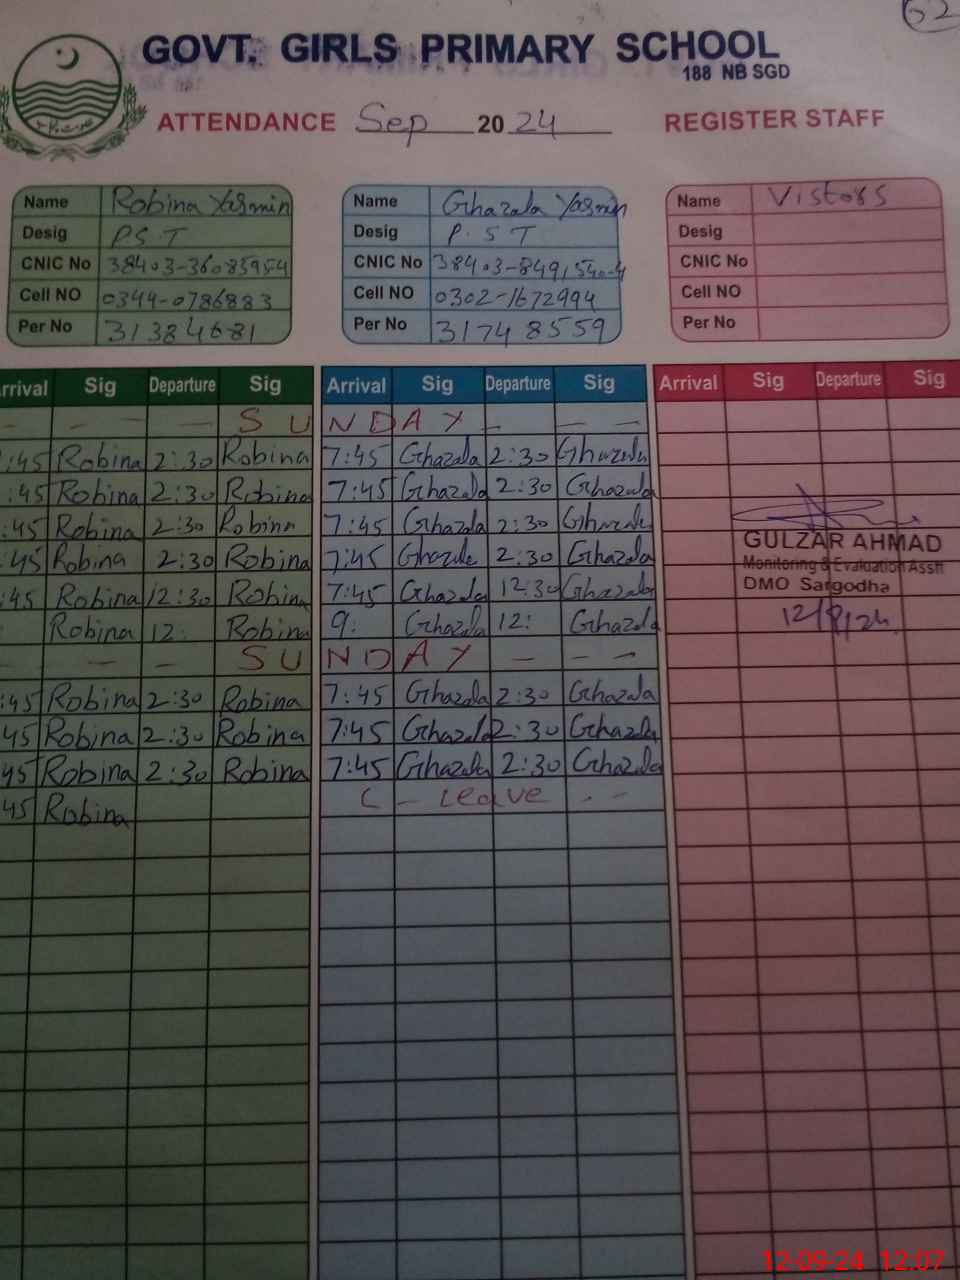 GOVT. GIRLS PRIMARY SCHOOL
188 NB SGD
ATTENDANCE Sep 2024 REGISTER STAFF
Name Robina Yasmin
Desig P.S.T
CNIC No 38403-36085954
Cell NO 0344-0786883
Per No 31384681
Name Ghazala Yasmin
Desig P.S T
CNIC No
Cell NO 0302-1672994
Per No 31748559
Name Vistors
Desig
CNIC No
Cell NO
Per No
rrival Sig Departure Sig Arrival Sig Departure Sig Arrival Sig Departure Sig
SUNDAY
:45 Robina 2:30 Robina 7:45 Ghazala 2:30 Ghazala
:45 Robina 2:30 Robina 7:45 Ghazala 2:30 Ghazala
:45 Robina 2:30 Robina 7:45 Ghazala 2:30 Ghazala
:45 Robina 2:30 Robina 7:45 Ghazala 2:30 Ghazala
:45 Robina 12:30 Robina 7:45 Ghazala 12:30 Ghazala
Robina 12: Robina 9: Ghazala 12: Ghazala
SUNDAY
:45 Robina 2:30 Robina 7:45 Ghazala 2:30 Ghazala
45 Robina 2:30 Robina 7:45 Ghazala 2:30 Ghazala
45 Robina 2:30 Robina 7:45 Ghazala 2:30 Ghazala
45 Robina C - Leave - -
GULZAR AHMAD
Monitoring & Evaluation Asstt
DMO Sargodha
12-09-24 12:07